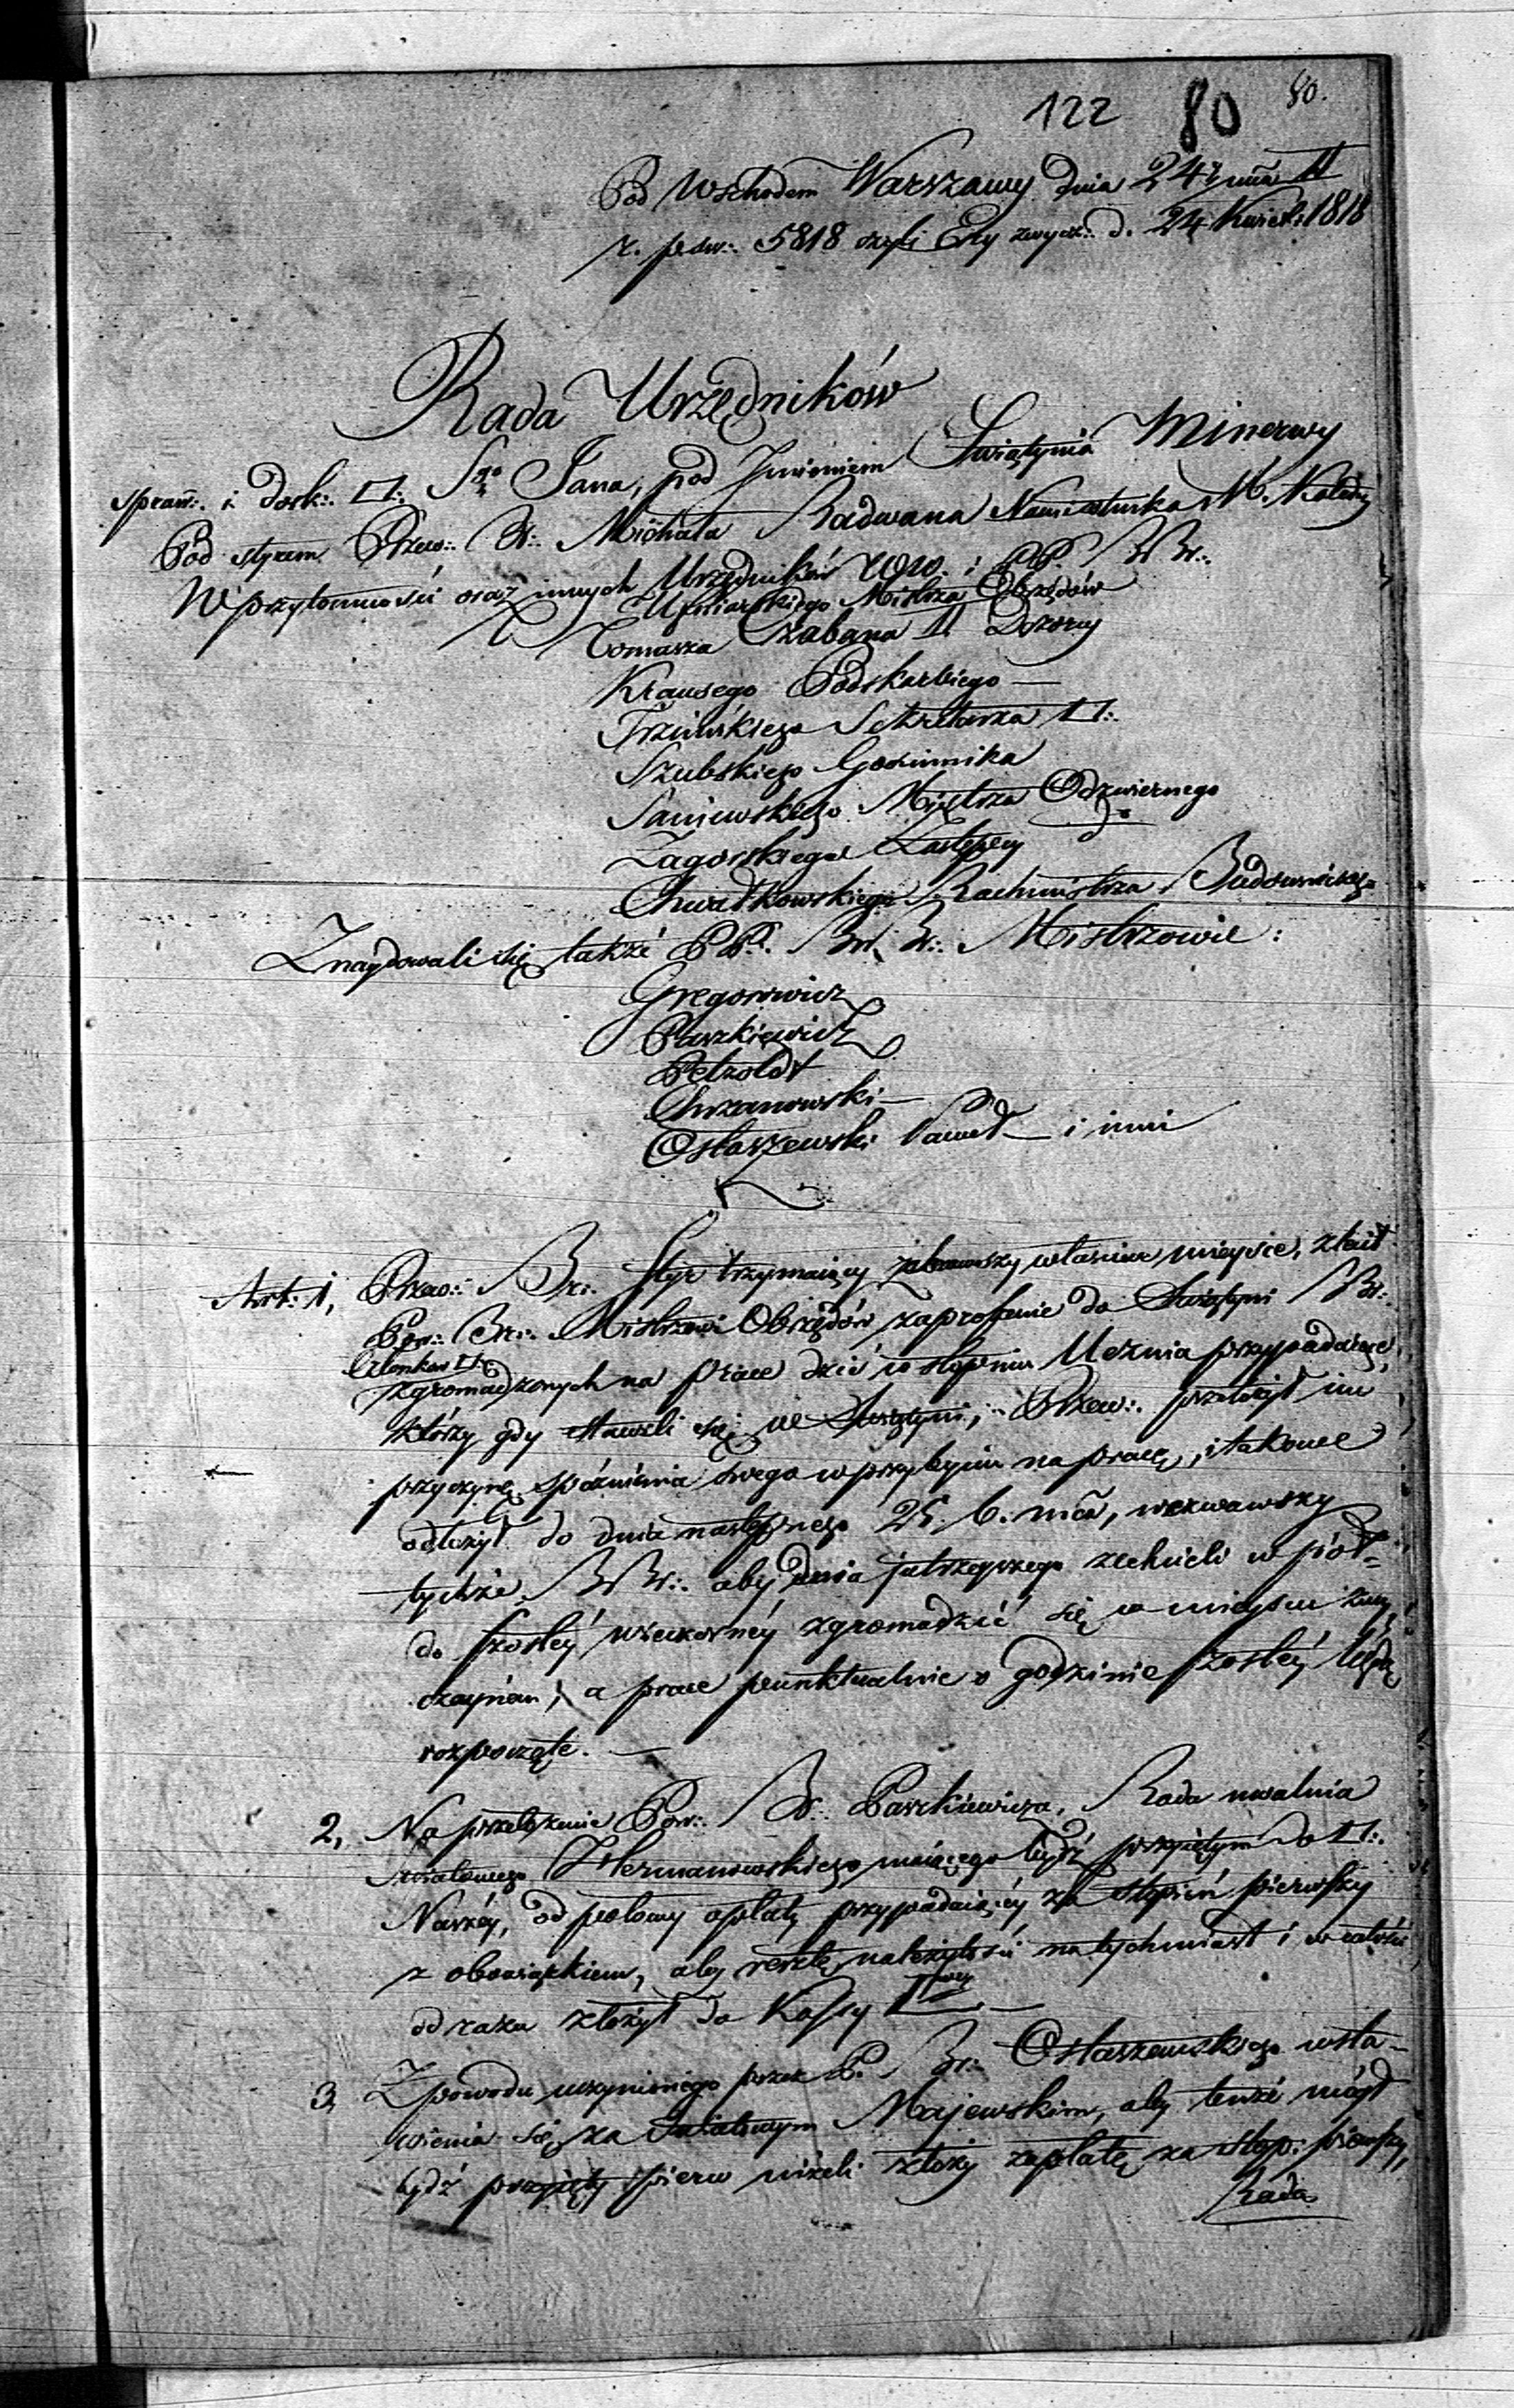 122 80 80.
Pod Wschodem Warszawy dnia 24. mca II
r. p. św:. 5818 czyli Ery zwycz:. d. 24 Kwiet: 1818
Rada Urzędników
spraw:. i dosk:. □:. Sgo Jana, pod Imieniem Swiątynia Minerwy
Pod styrem Przew:. Br:. Michała Radwana Namiestnika M. Katedry
W przytomności oraz innych Urzędników WW. i PP. BBr:.
Mistrza Obrzędów
Tomasza Czabana II Dozorcy
Krausego Podskarbiego —
Sekretarza □:.
Szubskiego Gościnnika
Saniewskiego Mistrza Odzwiernego
Zagorskiego Zastępcy do
Chwatkowskiego Rachmistrza Budowniczego
Znaydowali się także PP. BBr:. Mistrzowie:
Gregorowicz
Paszkiewicz
Petzoldt
Chrzanowski —
Ostaszewski Paweł — i inni
Art: 1, Przew:. Br:. Styr trzymaiący zabrawszy właściwe mieysce, zlecił
Pow:. Br:. Mistrzowi Obrzędów zaproszenie do Swiątyni BBr:.
Członków □:.
zgromadzonych na prace dziś w stopniu Ucznia przypadaiące,
którzy gdy stawili się we Swiątyni, Przew:. przełożył im
przyczynę spóźnienia swego w przybyciu na pracę, i takowe
odłożył do dnia następnego 25. b. mca, wezwawszy
tychże BBr:. aby dnia jutrzeyszego zechcieli w pół
do szostéy wieczornéy zgromadzić się w mieyscu zwy-
czaynem, a prace punktualnie o godzinie szostéy będą
rozpoczęte. —
2, Na przełożenie Pow:. Br:. Paszkiewicza, Rada uwalnia
swiatowego Hermanowskiego maiącego bydź przyiętym do □:.
Naszéy, od połowy opłaty przypadaiącéy za stopień pierwszy
z obowiązkiem, aby resztę należytości natychmiast i w całości
od razu złożył do Kassy □wey —
3, Z powodu uczynionego przez P. Br:. Ostaszewskiego wsta-
wienia się za swiatowym Majewskim, aby tenże mógł
bydź przyięty pierw niżeli złoży zapłatę za stop: pierwszy,
Rada